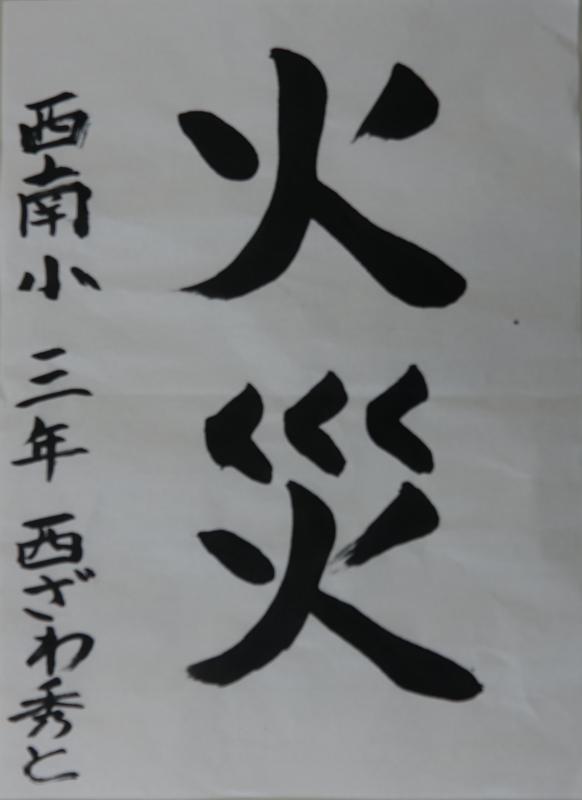 火災
西南小 三年 西ざわ秀と